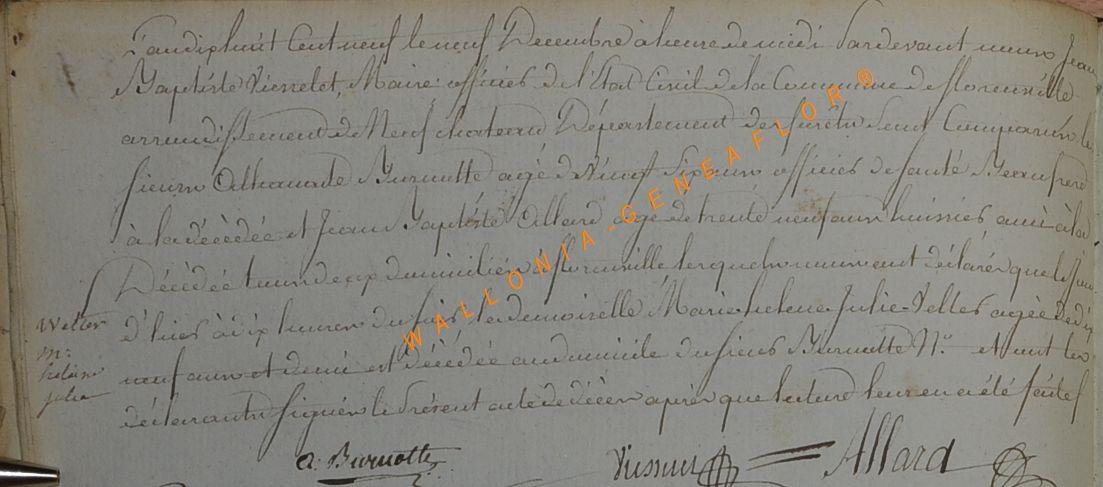 L'an dix huit Cent neuf le neuf Decembre à heure de midi Pardevant nous Jean
Baptiste Maire officier de l'Etat Civil de la Commune de florenville
arrondissement de Neufchateau Département des forêts sont Comparus les
sieurs Burnotte agé de vingt six ans officier de santé Beaufrere
à la décédée et Jean Baptiste Allard agé de trente neuf ans huissier ami à la
Décédée tous deux domiciliés à florenville lesquels nous ont déclarés que le jour
d'hier à dix heures du soir, la demoiselle Marie helene Julie agée de dix
neuf ans et demi est décédée au domicile du sieur Burnotte N.º et ont les
déclarants signés le Présent acte de décès après que lecture leur en a été faite
Welter
M.e
helene
julie
a. Burnotte
Allard
WALLONIA-GENEAFLOR ®